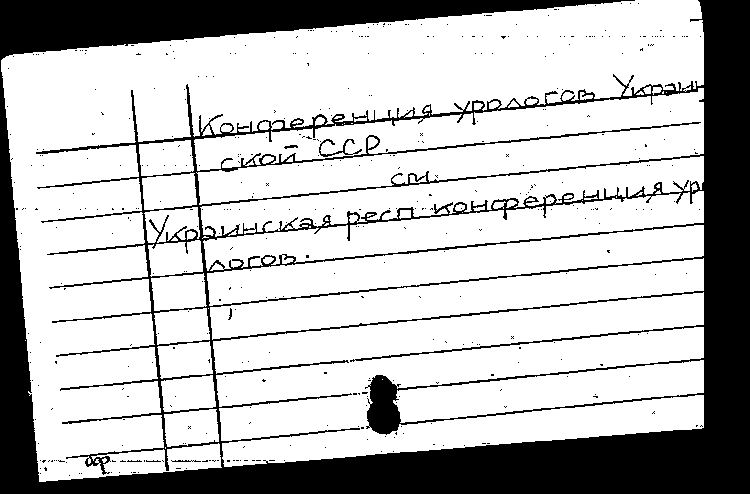 Конференция урологов Украин
ской ССР.
см.
Украинская респ конференция уро
логов.